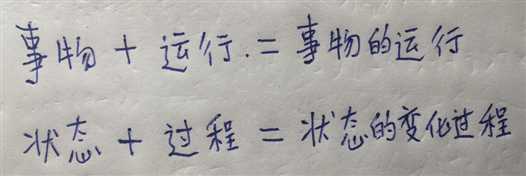 事物 + 运行 = 事物的运行
状态 + 过程 = 状态的变化过程